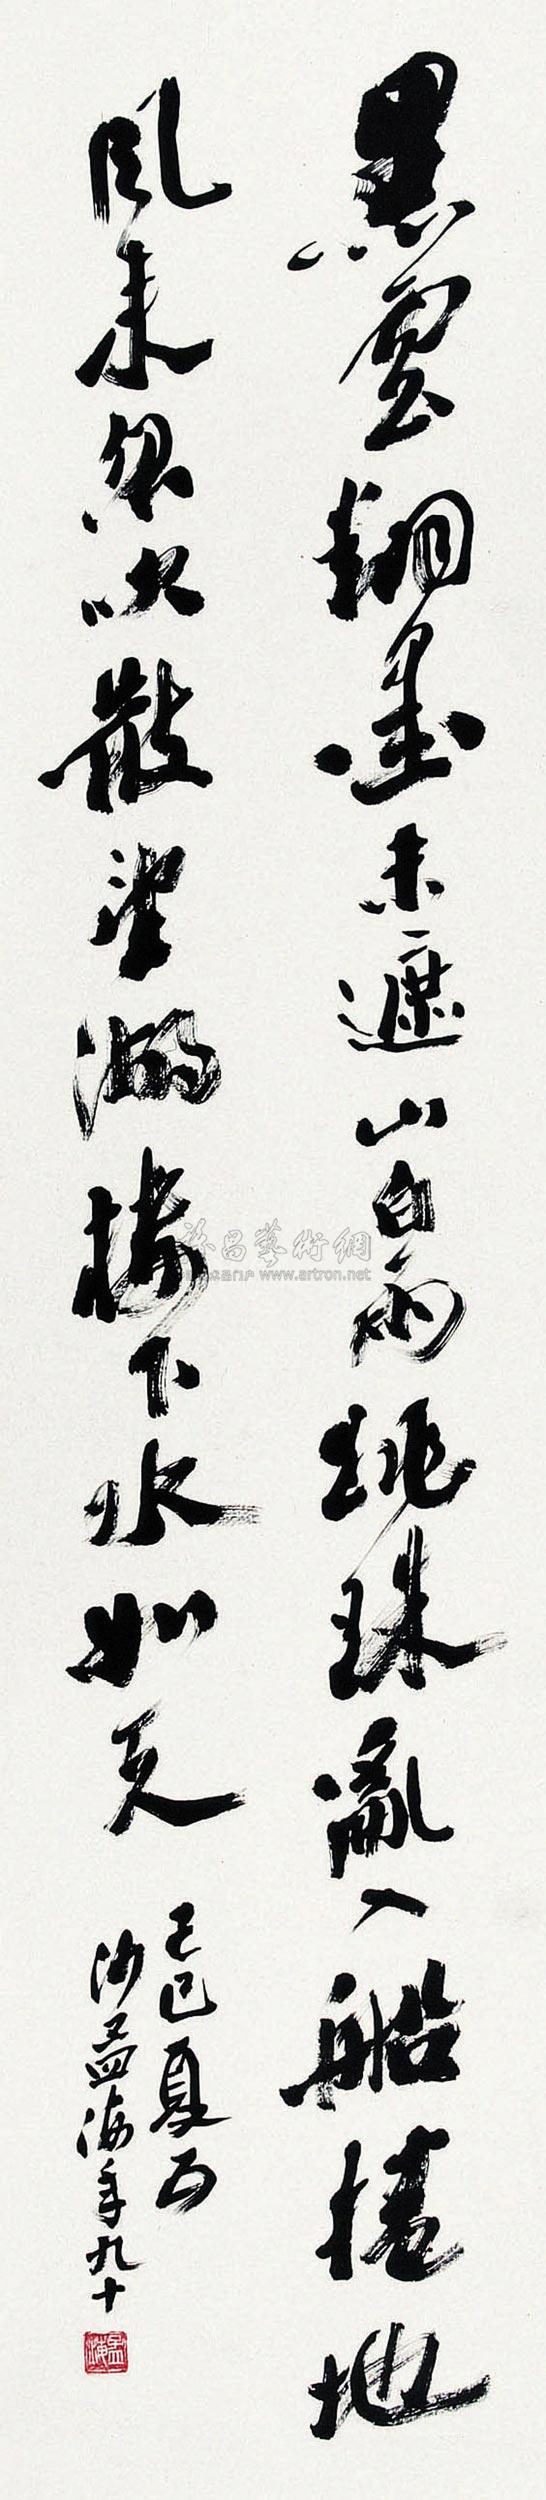 黑雲翻墨未遮山白雨跳珠亂入船捲地
風来忽吹散望湖樓下水如天
己巳夏五
沙孟海年九十
孟海
雅昌藝術網
www.artron.net